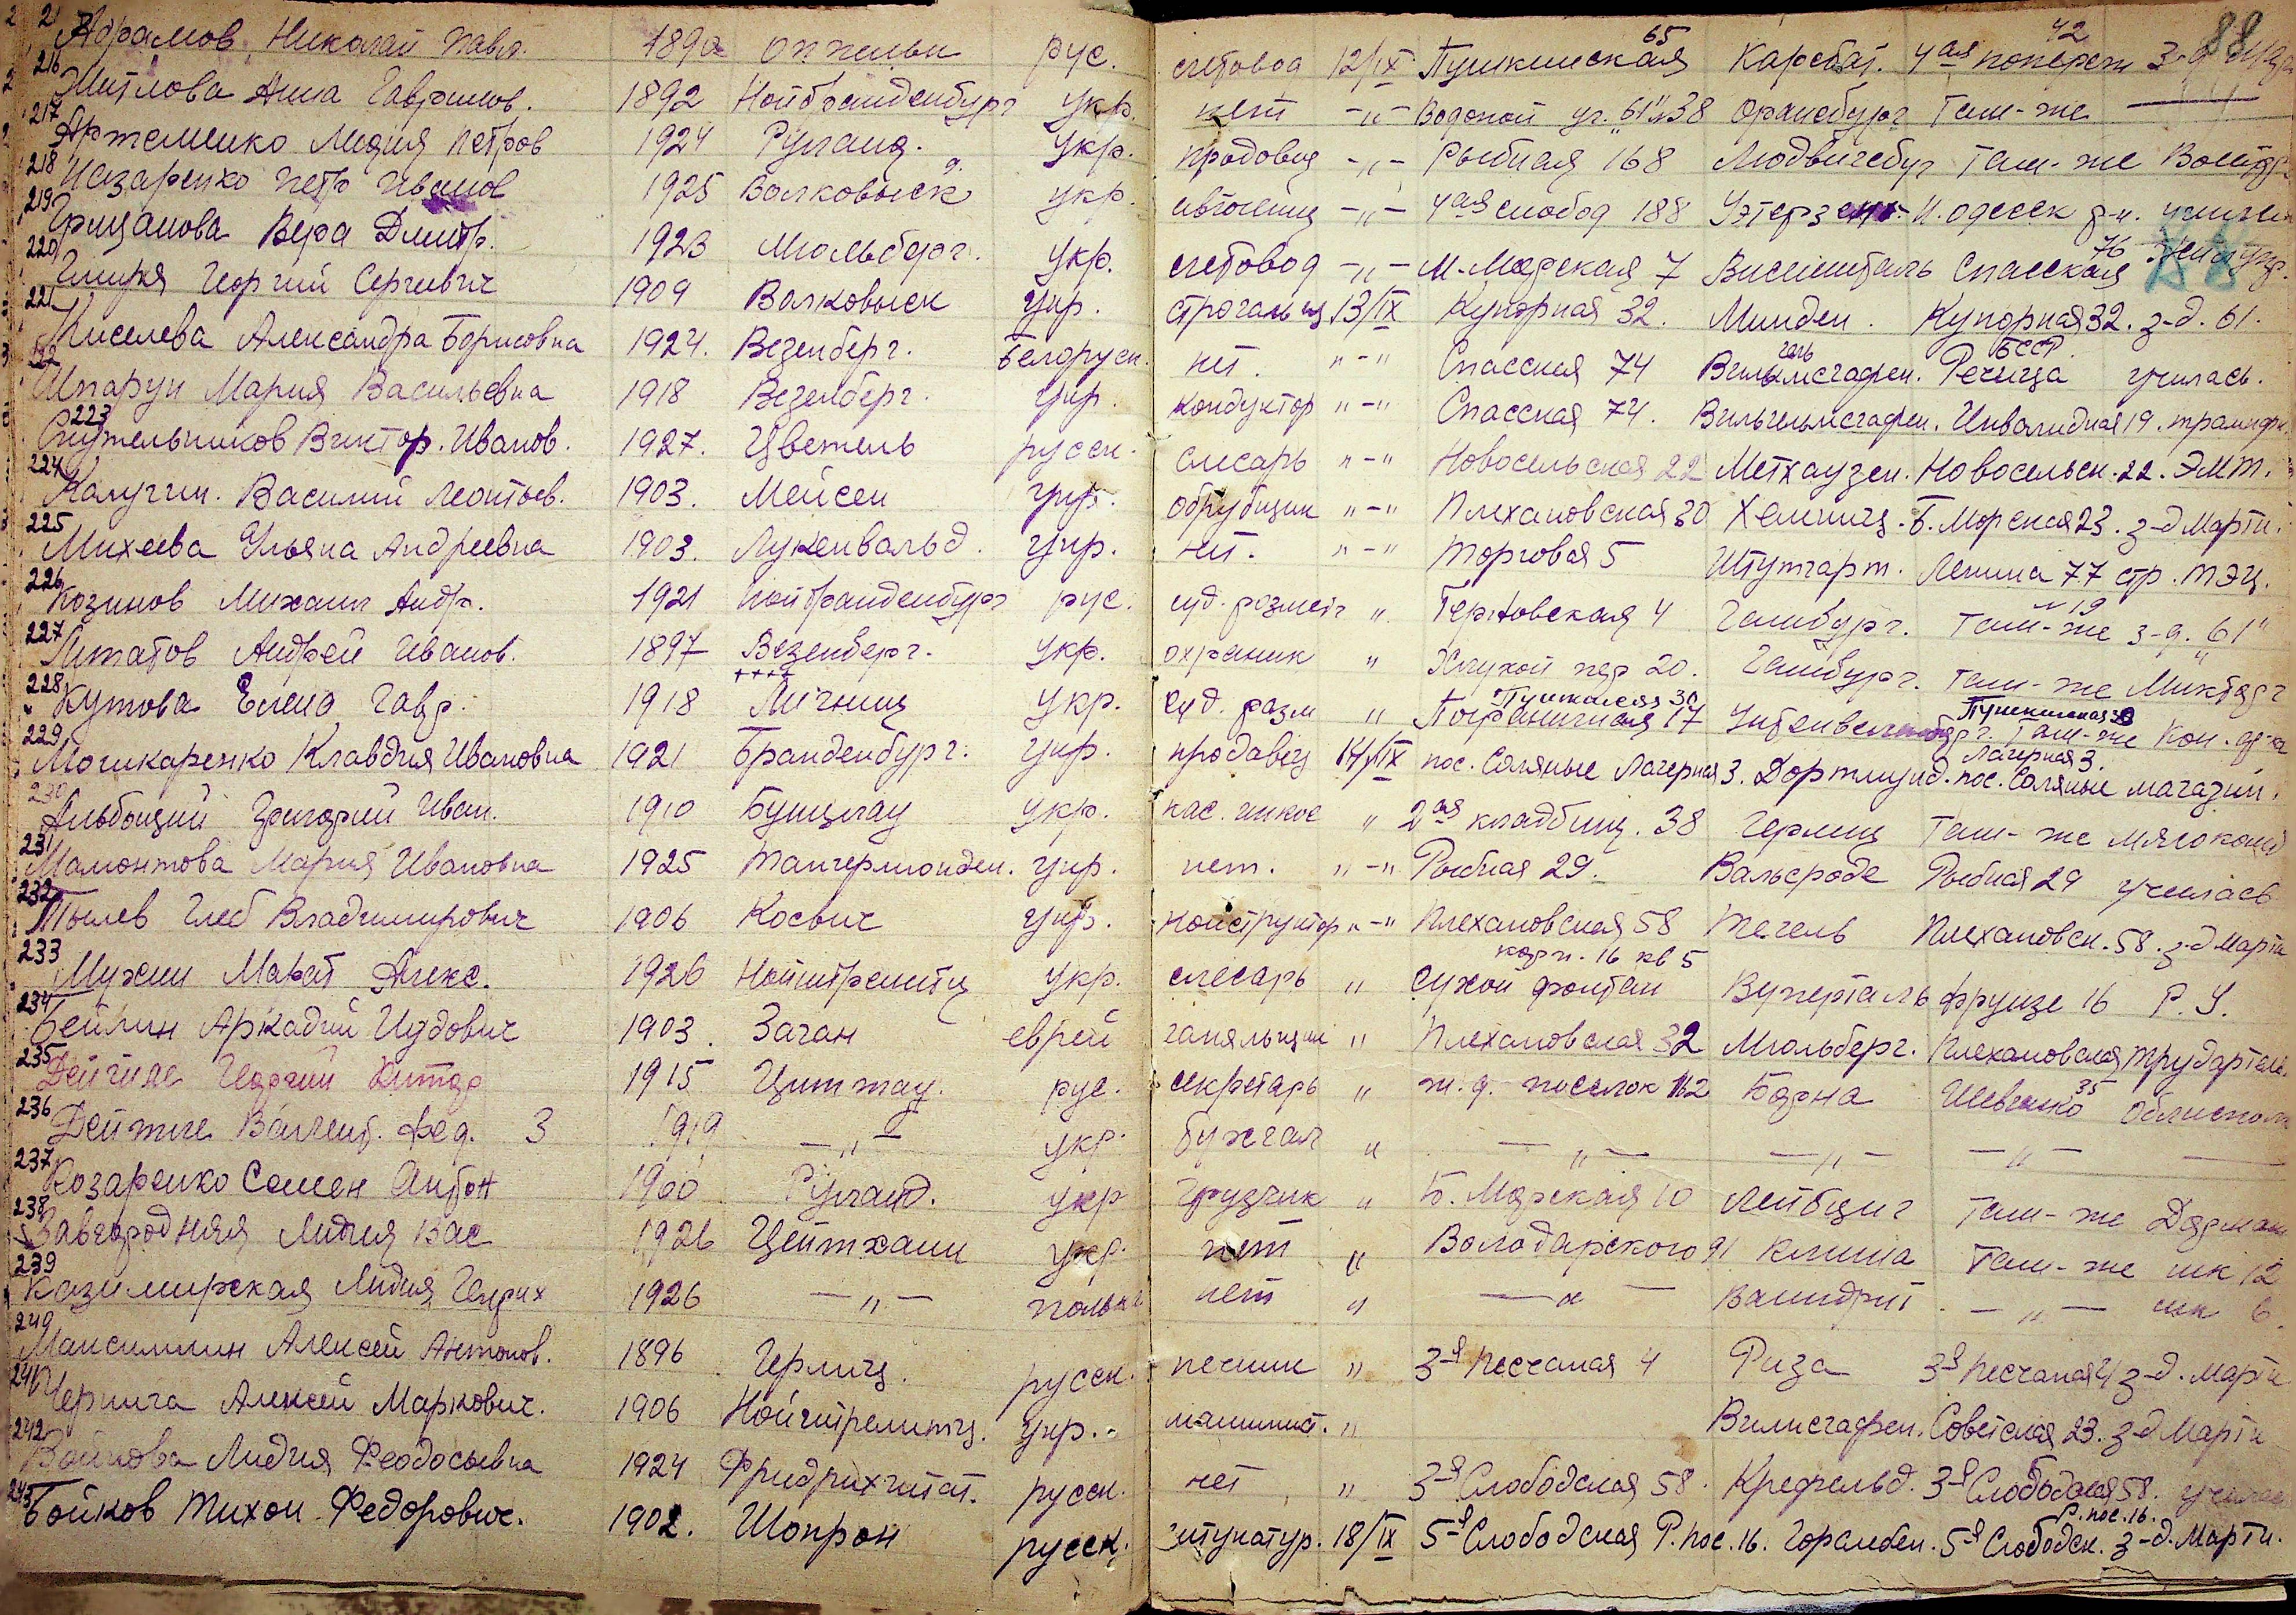 88
Абрамов Николай Павл. 189 Оппельн рус. счетовод 12/IX Пушкинская 65 Карсбат. 4ая попереч 42
216 Митлова Анна Гаврилов. 1892 Нойбранденбург укр. нет -"- Водопой уч. "61" 38 Орансбург Там-же
217 Артеменко Лидия Петров 1924 Руланд. укр. продовец -"- Рыбная 168 Людвигсбуг Там-же
218 Назаренко Петр Иванов 1925 Волковыск укр. -"- 4ая слобод 188
219 Грицанова Вера Дмитр. 1923 Мюльберг. укр. счетовод -"- М.-Морская 7 Спасская 76
220 Глируя Георгий Сергиевич 1909 Валковыск укр. строгальщ 13/IX Купорная 32. Минден. Купорная 32. з-д. 61.
221 Киселева Александра Борисовна 1924. Везенберг. белорусн. нет. "-" Спасская 74 Вильгельмсгафен. БССР. Речица училась.
222 Шпарун Мария Васильевна 1918 Везенберг. укр. кондуктор "-" Спасская 74. Вильгельмсгафен. Инвалидная 19.
223 Виктор. Иванов. 1927. Цветель русск. слесарь "-" Новосельская 22 Метхаузен. Новосельск. 22. ЭМТ.
224 Калугин. Василий Леонтьев. 1903. Мейсен укр. обрубщик "-" Плехановская 30 Хемниц. Б. Морская 23. з-д Марти.
225 Михеева Ульяна Андреевна 1903. Лукенвальд. укр. нет. "-" Торговая 5 Штутгарт. Ленина 77 стр. ТЭЦ.
226 Козинов Михаил Андр. 1921 Нойбранденбург рус. суд. розметч " 4 Гамбург. Там-же 19 з-д. "61"
227 Андрей Иванов. 1897 Везенберг. укр. охраник " Глухой пер 20. Гамбург. Там-же
228 Кутова Елена Гавр. 1918 Личниц укр. суд. разм " Пограничная 17 Пушкинская 30 Там-же Пушкинская 30
229 Мошкаренко Клавдия Ивановна 1921 Бранденбург. укр. продавец 14/IX пос. Соляные Лагерная 3. Дортмунд. пос. Соляные Лагерная 3. магазин.
230 Альбоций Григорий Иван. 1910 Бунцлау укр. " 2ая кладбищ. 38 Герлиц Там-же
231 Мамонтова Мария Ивановна 1925 Тангермюнден. укр. нет. "-" Рыбная 29. Вальсроде Рыбная 29 училась
232 Тылев Глеб Владимирович 1906 Косвич укр. конструктор "-" Плехановская 58 Тегель Плехановск. 58. з-д Марти
233 Мухин Марат Алекс. 1926 Нойштрелитц укр. слесарь " Сухой фонтан корп. 16 кв 5 Вуперталь Фрунзе 16 Р. У.
234 Бейлин Аркадий Иудович 1903. Заган еврей " Плехановская 32 Мюльберг. Плехановская
235 Георгий 1915 Циттау. рус. секретарь " ж. д. поселок 162 Борна Шевченко 35
236 Валент. Фед. 3 1919 -"- укр. бухгал " -"- -"- -"-
237 Козаренко Семен Антон 1900 Руланд. укр грузчик " Б. Морская 10 Лейбциг Там-же
238 Завгородняя Лидия Вас 1926 Цейтхаин укр. нет " Володарского 91 Там-же шк 12
239 Казимирская Лидия Генрих 1926 -"- полька нет " -"- -"- шк 6.
240 Максимлин Алексей Антонов. 1896 Герлиц. русск. печник " 3-я Песчаная 4 Риза 3-я Песчаная 4 з-д. Марти
241 Чернига Алексей Маркович. 1906 Нойштрелитц. укр. машинист. " Вилмсгафен. Советская 23. з-д Марти
242 Войнова Лидия Феодосьевна 1924 Фридрихштат. русск. нет " 3-я Слободская 58. Крефельд. 3-я Слободская 58.
243 Бойков Тихон Федорович. 1902. Шопрон русск. штукатур. 18/IX 5-я Слободская Р. пос. 16. 5-я Слободск. Р. пос. 16. з-д. Марти.